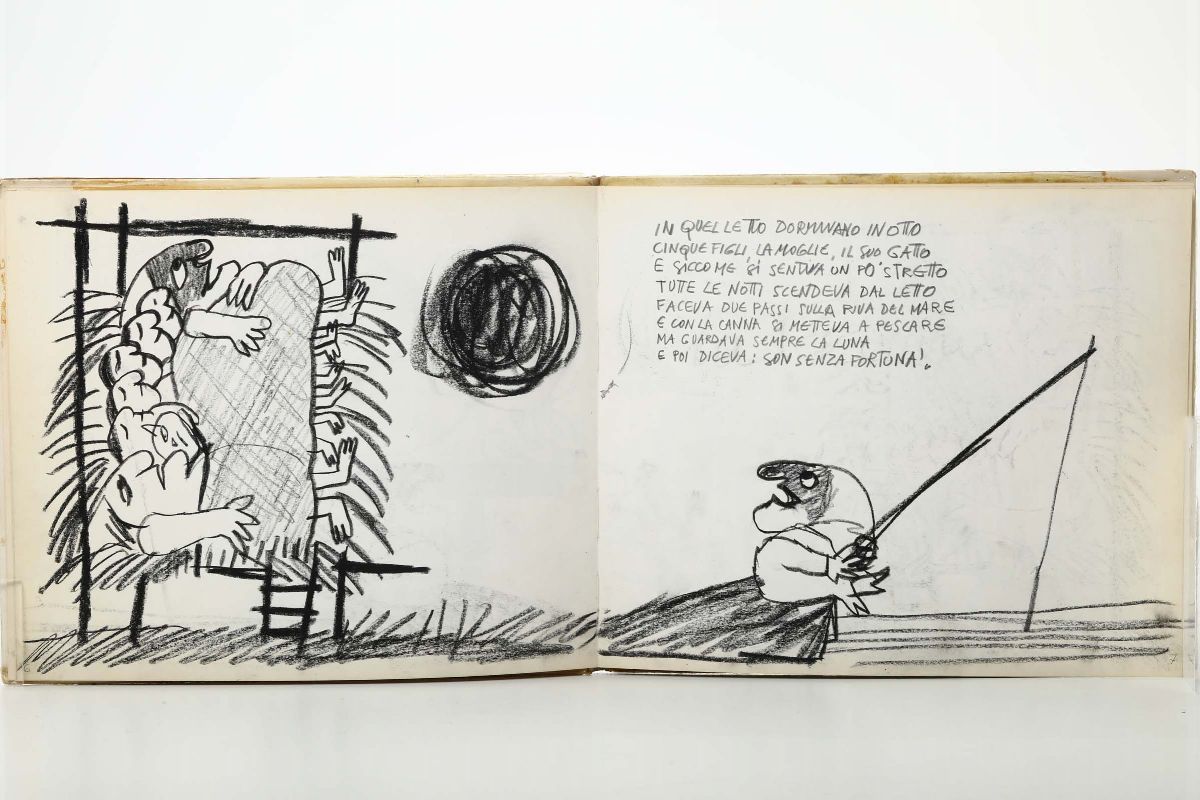 IN QUEL LETTO DORMIVANO IN OTTO
CINQUE FIGLI, LA MOGLIE, IL SUO GATTO
E SICCOME SI SENTIVA UN PO' STRETTO
TUTTE LE NOTTI SCENDEVA DAL LETTO
FACEVA DUE PASSI SULLA RIVA DEL MARE
E CON LA CANNA SI METTEVA A PESCARE
MA GUARDAVA SEMPRE LA LUNA
E POI DICEVA: SON SENZA FORTUNA!.